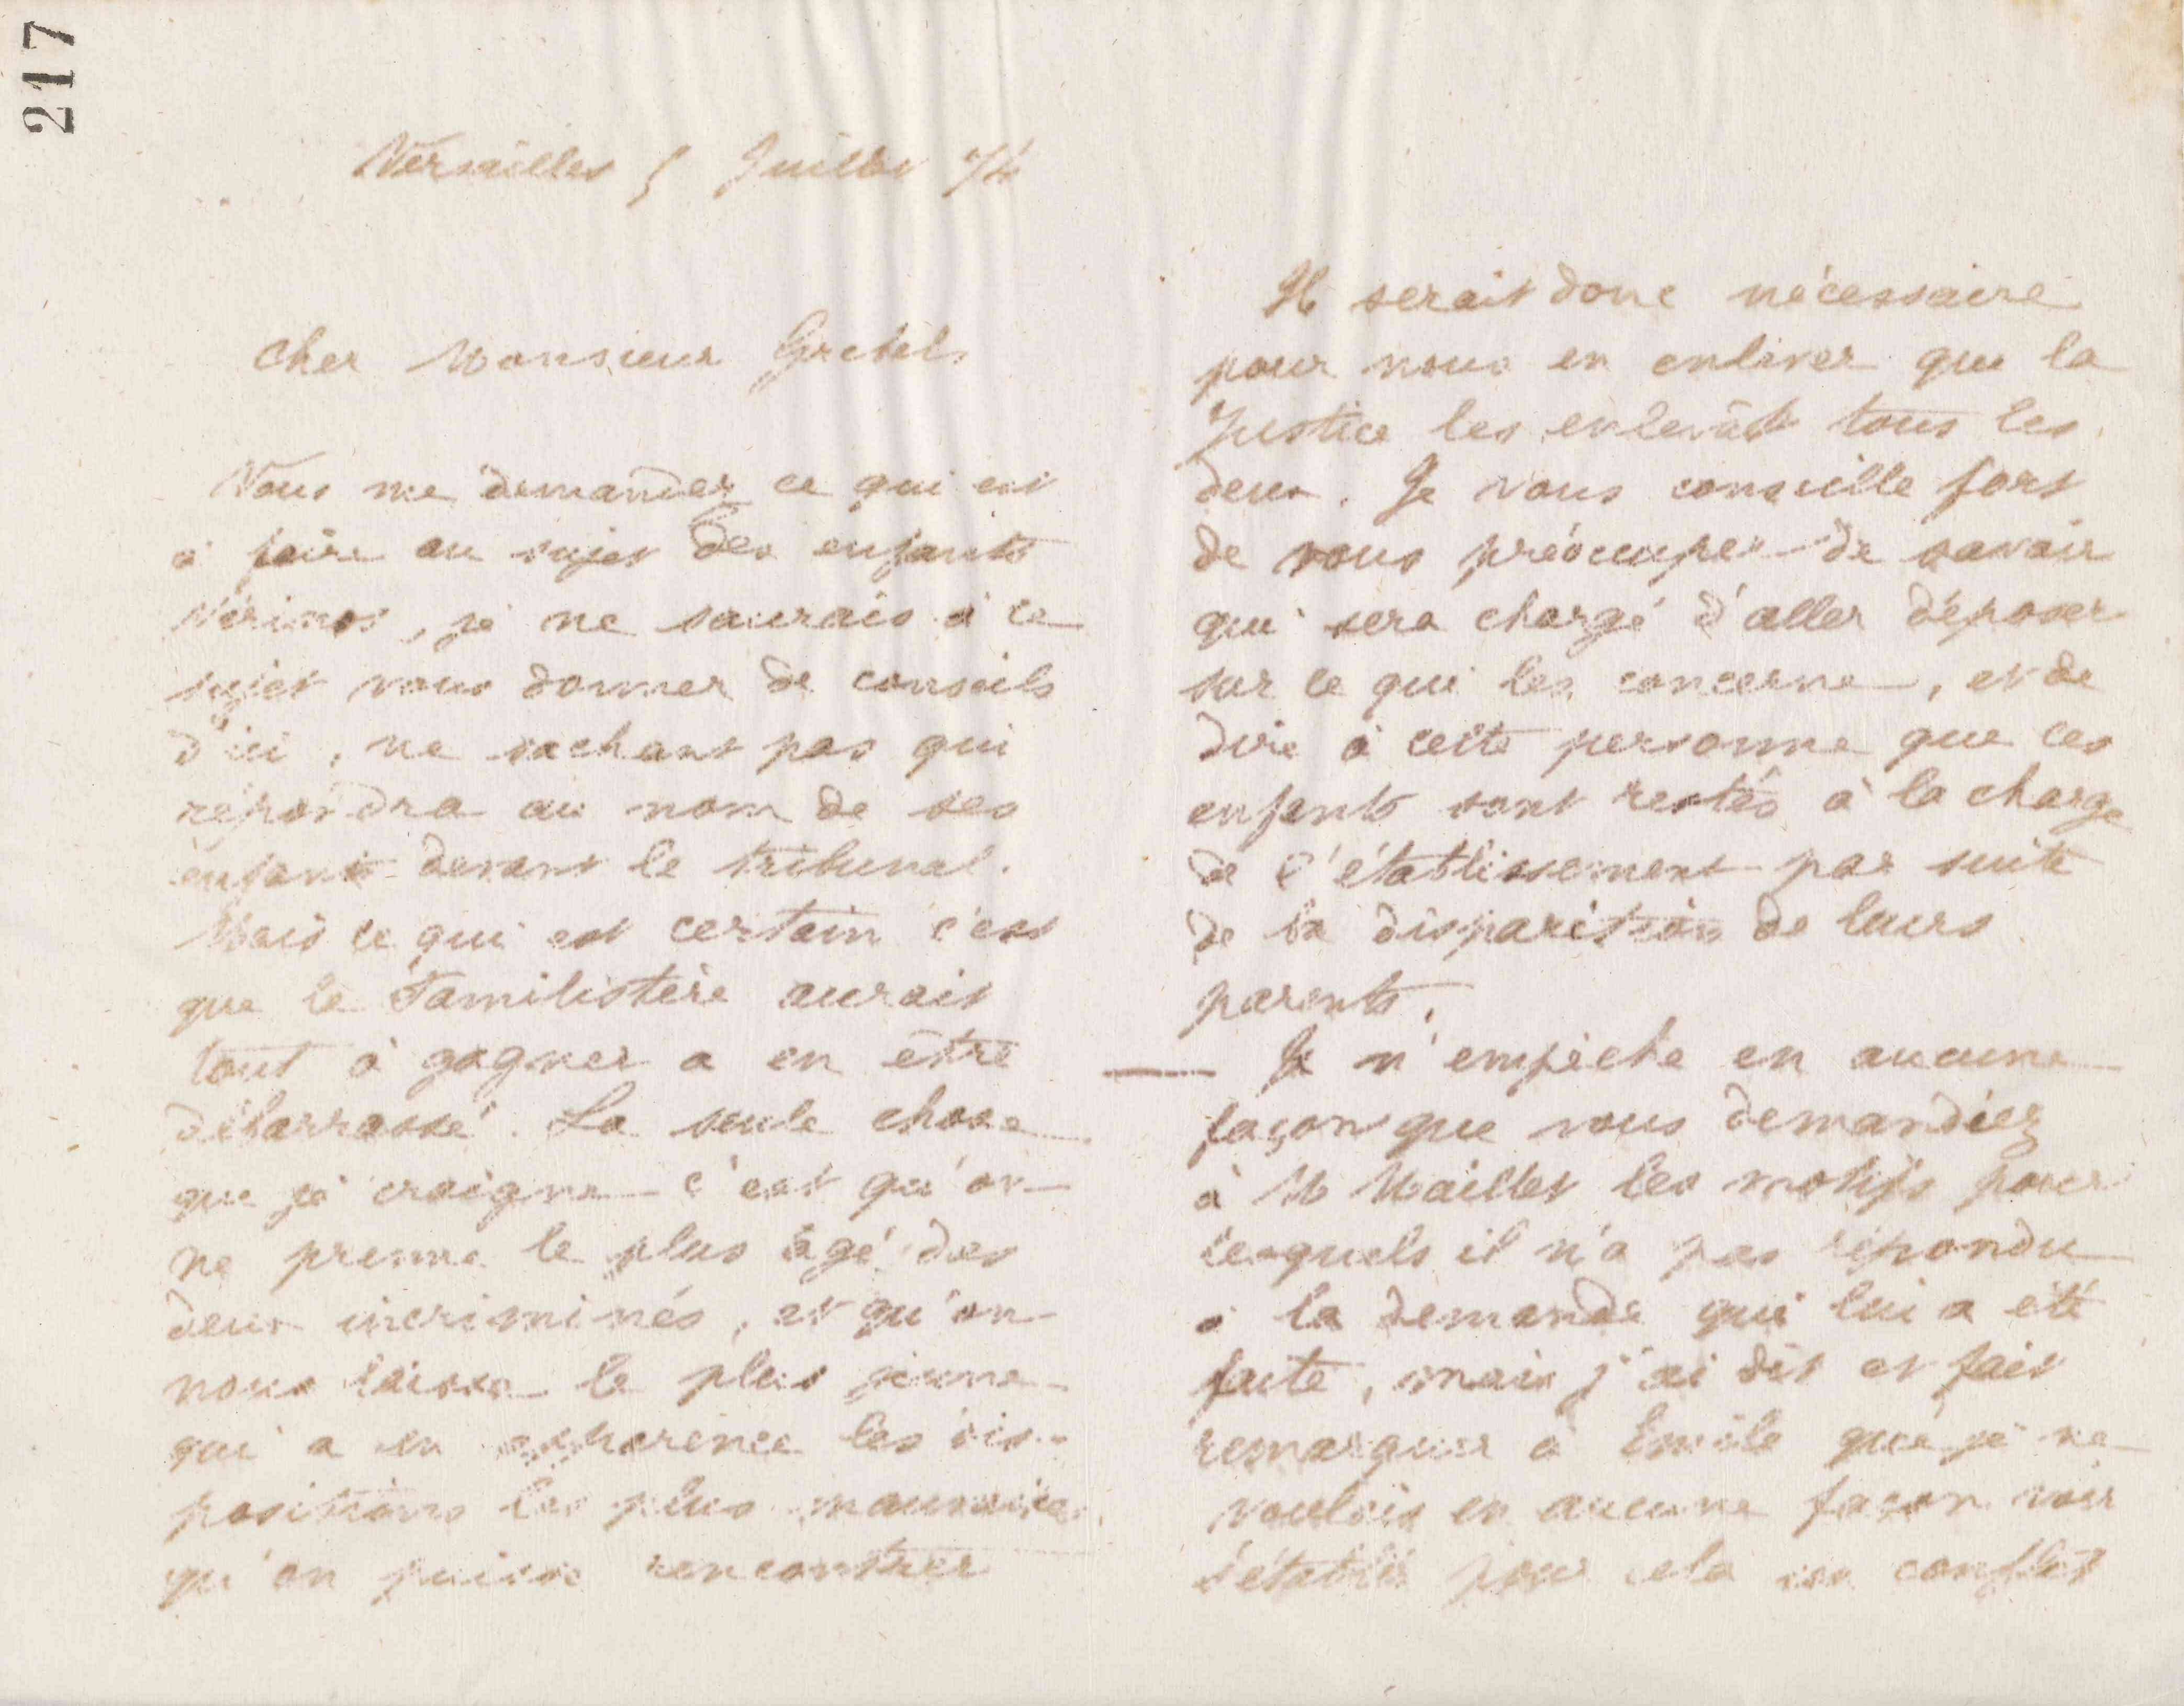 217
Versailles 5 Juillet 74
Cher Monsieur Grebel
Vous me demandez ce qui est
à faire au sujet des enfants
je ne saurais à ce
sujet vous donner de conseils
d'ici, ne sachant pas qui
répondra au nom de ses
enfants devant le tribunal.
Mais ce qui est certain c'est
que le Familistère aurait
tout à gagner a en être
débarrassé. La seule chose
que je craigne c'est qu'on
ne prenne le plus âgé des
deux incriminés, et qu'on
nous laisse le plus jeune
qui a en apparence les dis-
positions les plus mauvaises
qu'on puisse rencontrer
Il serait donc nécessaire
pour nous en enlever que la
Justice les enlevât tous les
deux. Je vous conseille fort
de vous préoccuper de savoir
qui sera chargé d'aller déposer
sur ce qui les concerne, et de
dire à cette personne que ces
enfants sont restés à la charge
de l'établissement par suite
de la disparition de leurs
parents.
— Je n'empêche en aucune
façon que vous demandiez
à M Maillet les motifs pour
lesquels il n'a pas répondu
à la demande qui lui a été
faite, mais j'ai dit et fait
remarquer à Emile que je ne
voulais en aucune façon voir
s'établir pour cela un conflit